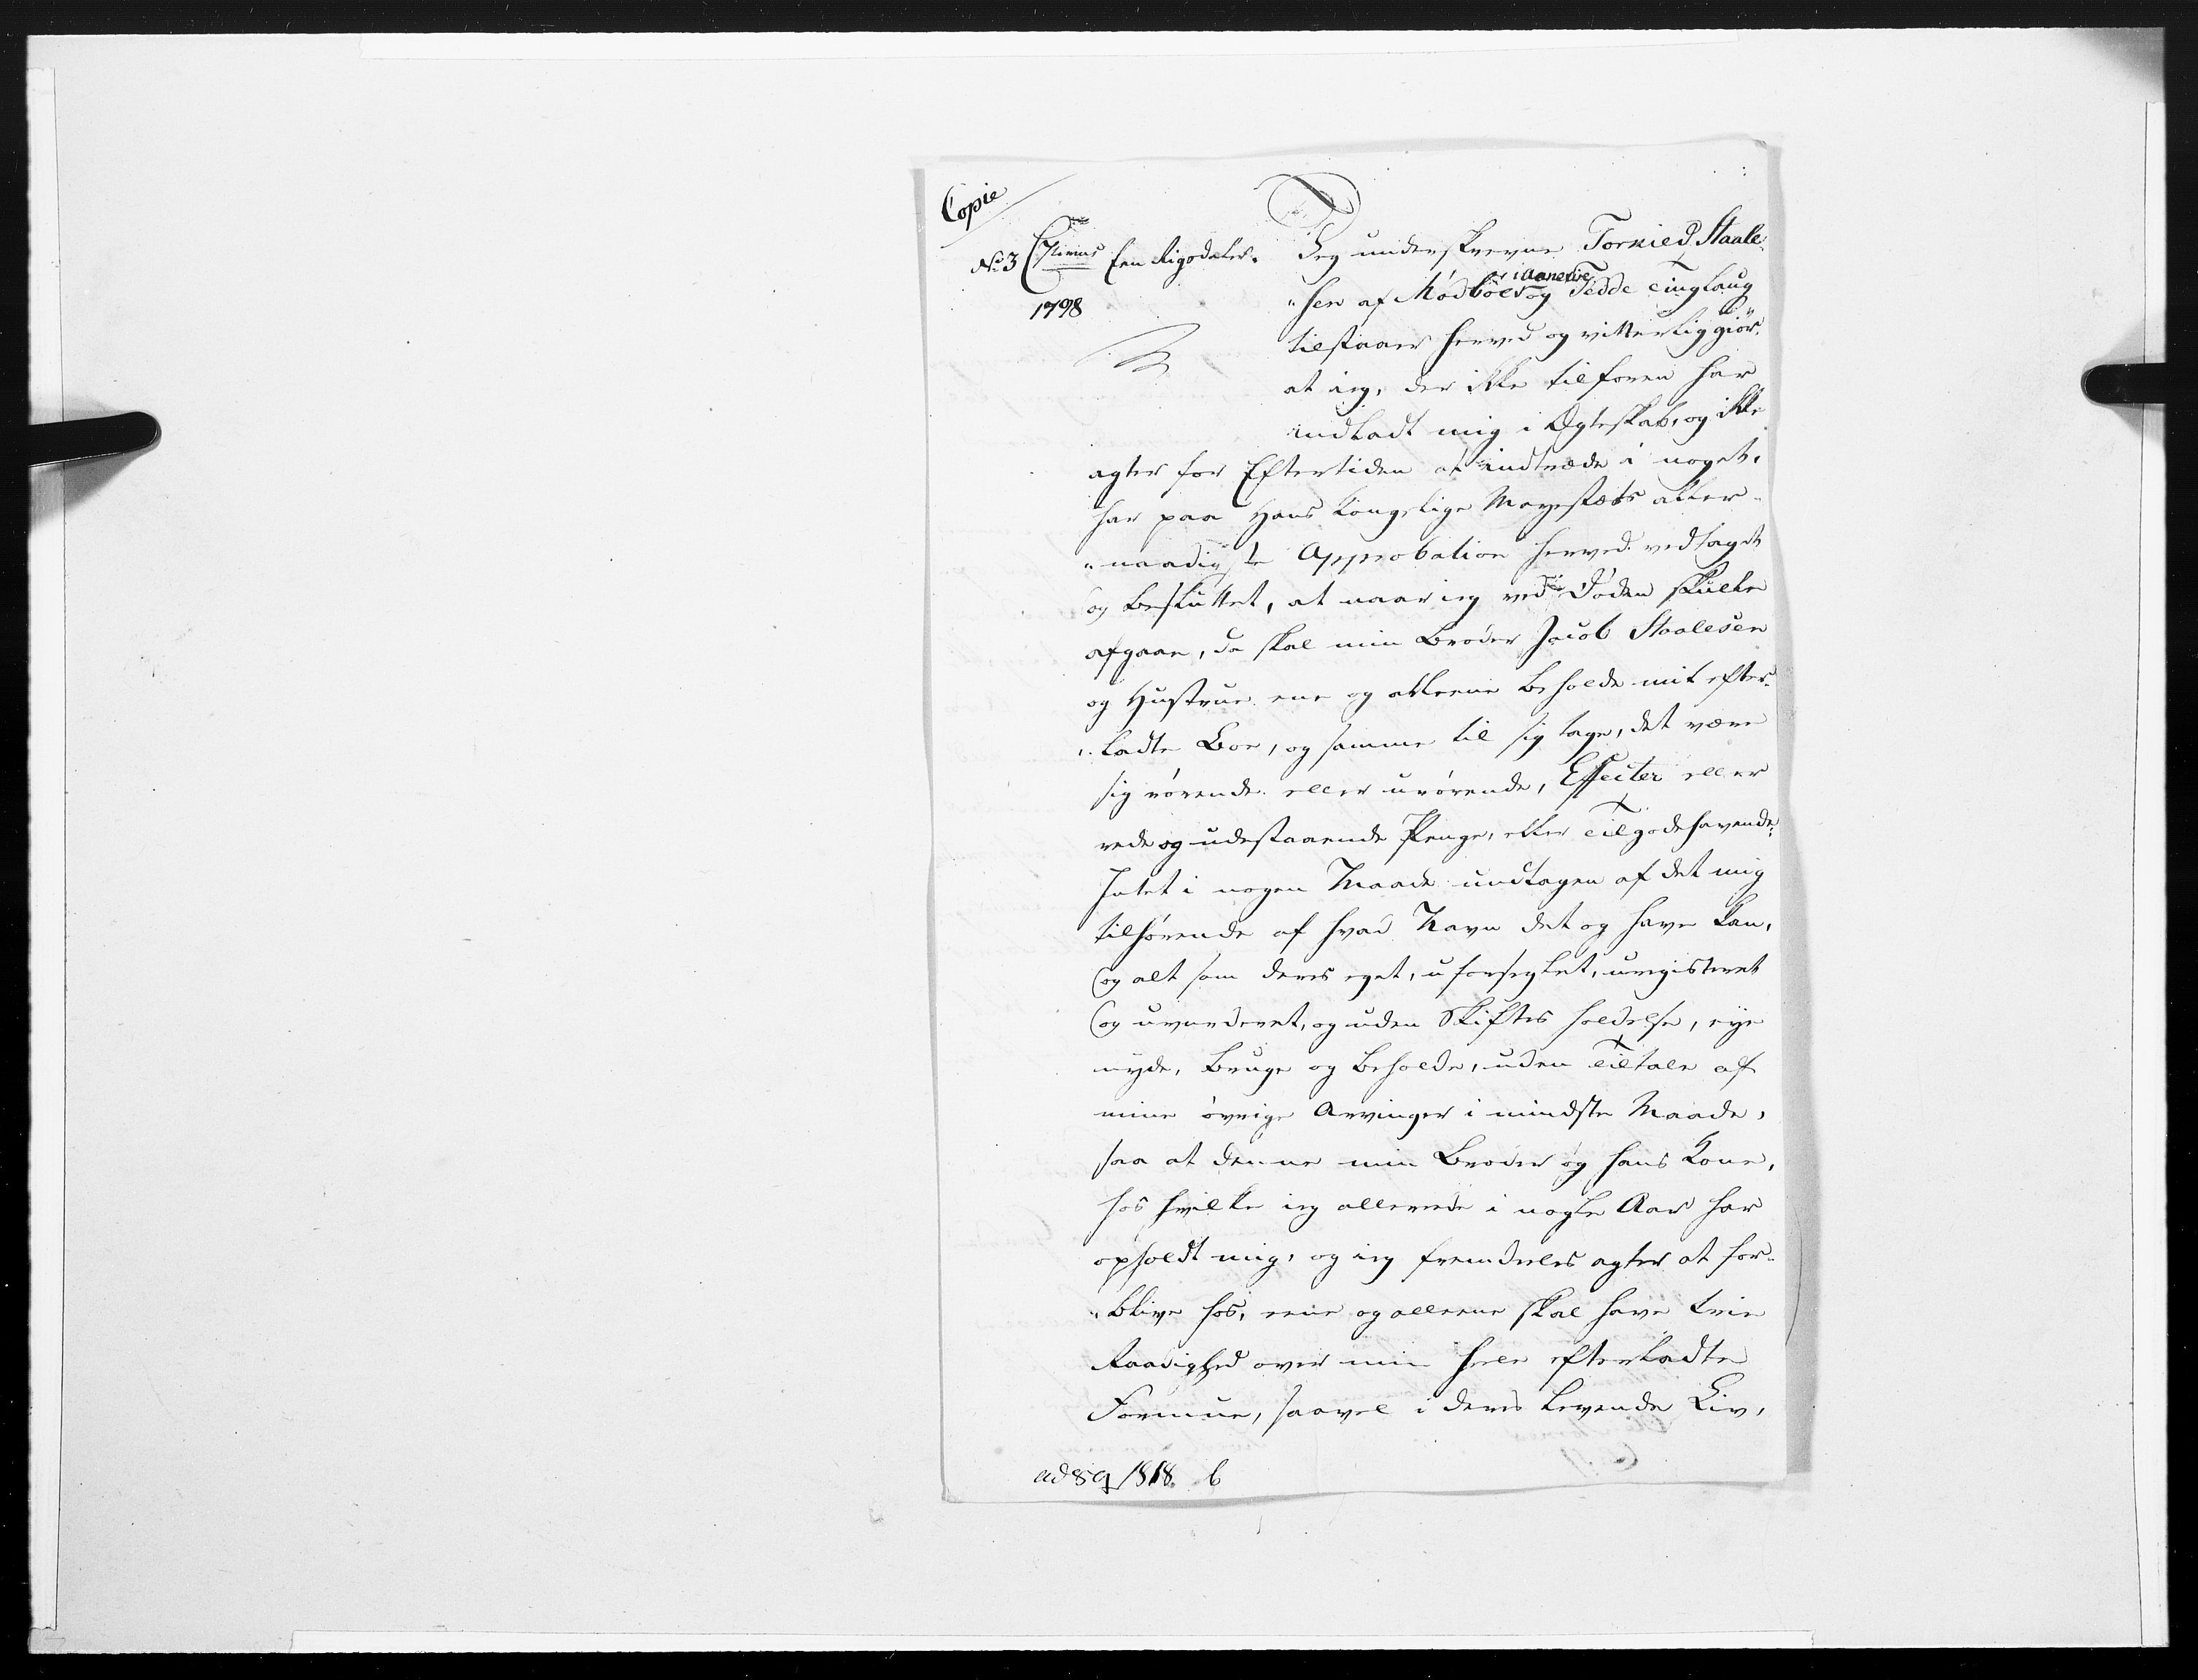 Copie
No. 3 C 7timus Een Rigsdaler.
1798
Jeg underskrevne Tormed Staale-
sen af Mødbøe i Annexie og Tedde Tinglaug
tilstaaer herved og vitterlig giør:
at ieg, der ikke tilforn har
indladt mig i Ægteskab, og ikke
agter for Eftertiden at indtræde i noget,
har paa Hans Kongelige Mayestæts aller-
naadigste Approbation herved vedtaget
og besluttet, at naar ieg ved Døden skulle
afgaae, da skal min Broder Jacob Staalesen
og Hustrue ene og alleene beholde mit efter-
ladte Boe, og samme til sig tage, det være
sig rørende eller urørende, Effecter eller
rede og udestaaende Penge, eller Tilgodehavende,
Intet i nogen Maade undtagen af det mig
tilhørende af hvad Navn det og have kan,
og alt som deres eget, uforseglet, uregistreret
og uvurderet, og uden Skiftes holdelse, eye
nyde, bruge og beholde, uden Tiltale af
mine øvrige Arvinger i mindste Maade,
saa at denne min Broder og hans Kone,
hos hvilke ieg allerede i nogle Aar har
opholdt mig, og ieg fremdeles agter at for-
blive hos, eene og alleene skal have frie
Raadighed over min hele efterladte
Formue, saavel i deres levende Liv,
ad 89/1818 b